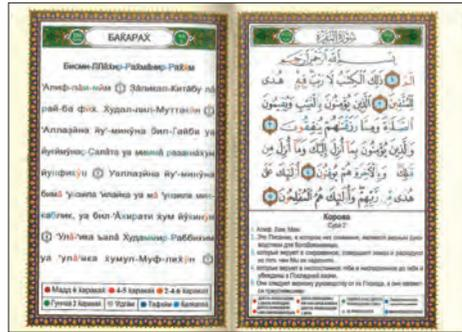 БАКАРАХ
Бисми-ЛЛāхир-Рахмāнир-Рахӣм
'Алиф-лāм-мӣм ① Зāликал-Китāбу лā
рай-ба фӣх. Худал-лил-Муттакӣн ②
'Аллазӣна йу'-минӯна бил-Гайби уа
йуқӣмӯнас-Салāта уа миммā разакнāхум
йунфикӯн ③ Уаллазӣна йу'-минӯна
бимā 'унзила 'илайка уа мā 'унзила мин-
каблик, уа бил-'Āхирати хум йӯкинӯн
④ 'Улā-'ика ъалā Худаммир-Раббихим
уа 'улā'ика хумул-Муф-лихӯн ⑤
Мадд 6 Харакай
4-5 Харакай
2-4-6 Харакай
Гунна 2 Харакай
Идгāм
Тафхӣм
Калкала
سُورَةُ الْبَقَرَةِ
بِسْمِ اللَّهِ الرَّحْمَٰنِ الرَّحِيمِ
الٓمٓ ۝١ ذَٰلِكَ الْكِتَابُ لَا رَيْبَ فِيهِ هُدًى
لِّلْمُتَّقِينَ ۝٢ الَّذِينَ يُؤْمِنُونَ بِالْغَيْبِ وَيُقِيمُونَ
الصَّلَاةَ وَمِمَّا رَزَقْنَاهُمْ يُنفِقُونَ ۝٣
وَالَّذِينَ يُؤْمِنُونَ بِمَا أُنزِلَ إِلَيْكَ وَمَا أُنزِلَ مِن
قَبْلِكَ وَبِالْآخِرَةِ هُمْ يُوقِنُونَ ۝٤ أُولَٰئِكَ عَلَىٰ
هُدًى مِّن رَّبِّهِمْ وَأُولَٰئِكَ هُمُ الْمُفْلِحُونَ ۝٥
Корова
Сура 2
1. Алиф. Лам. Мим.
2. Это Писание, в котором нет сомнения, является верным руко-
водством для богобоязненных,
3. которые веруют в сокровенное, совершают намаз и расходуют
из того, чем Мы их наделили,
4. которые веруют в ниспосланное тебе и ниспосланное до тебя и
убеждены в Последней жизни.
5. Они следуют верному руководству от их Господа, и они являют-
ся преуспевшими.